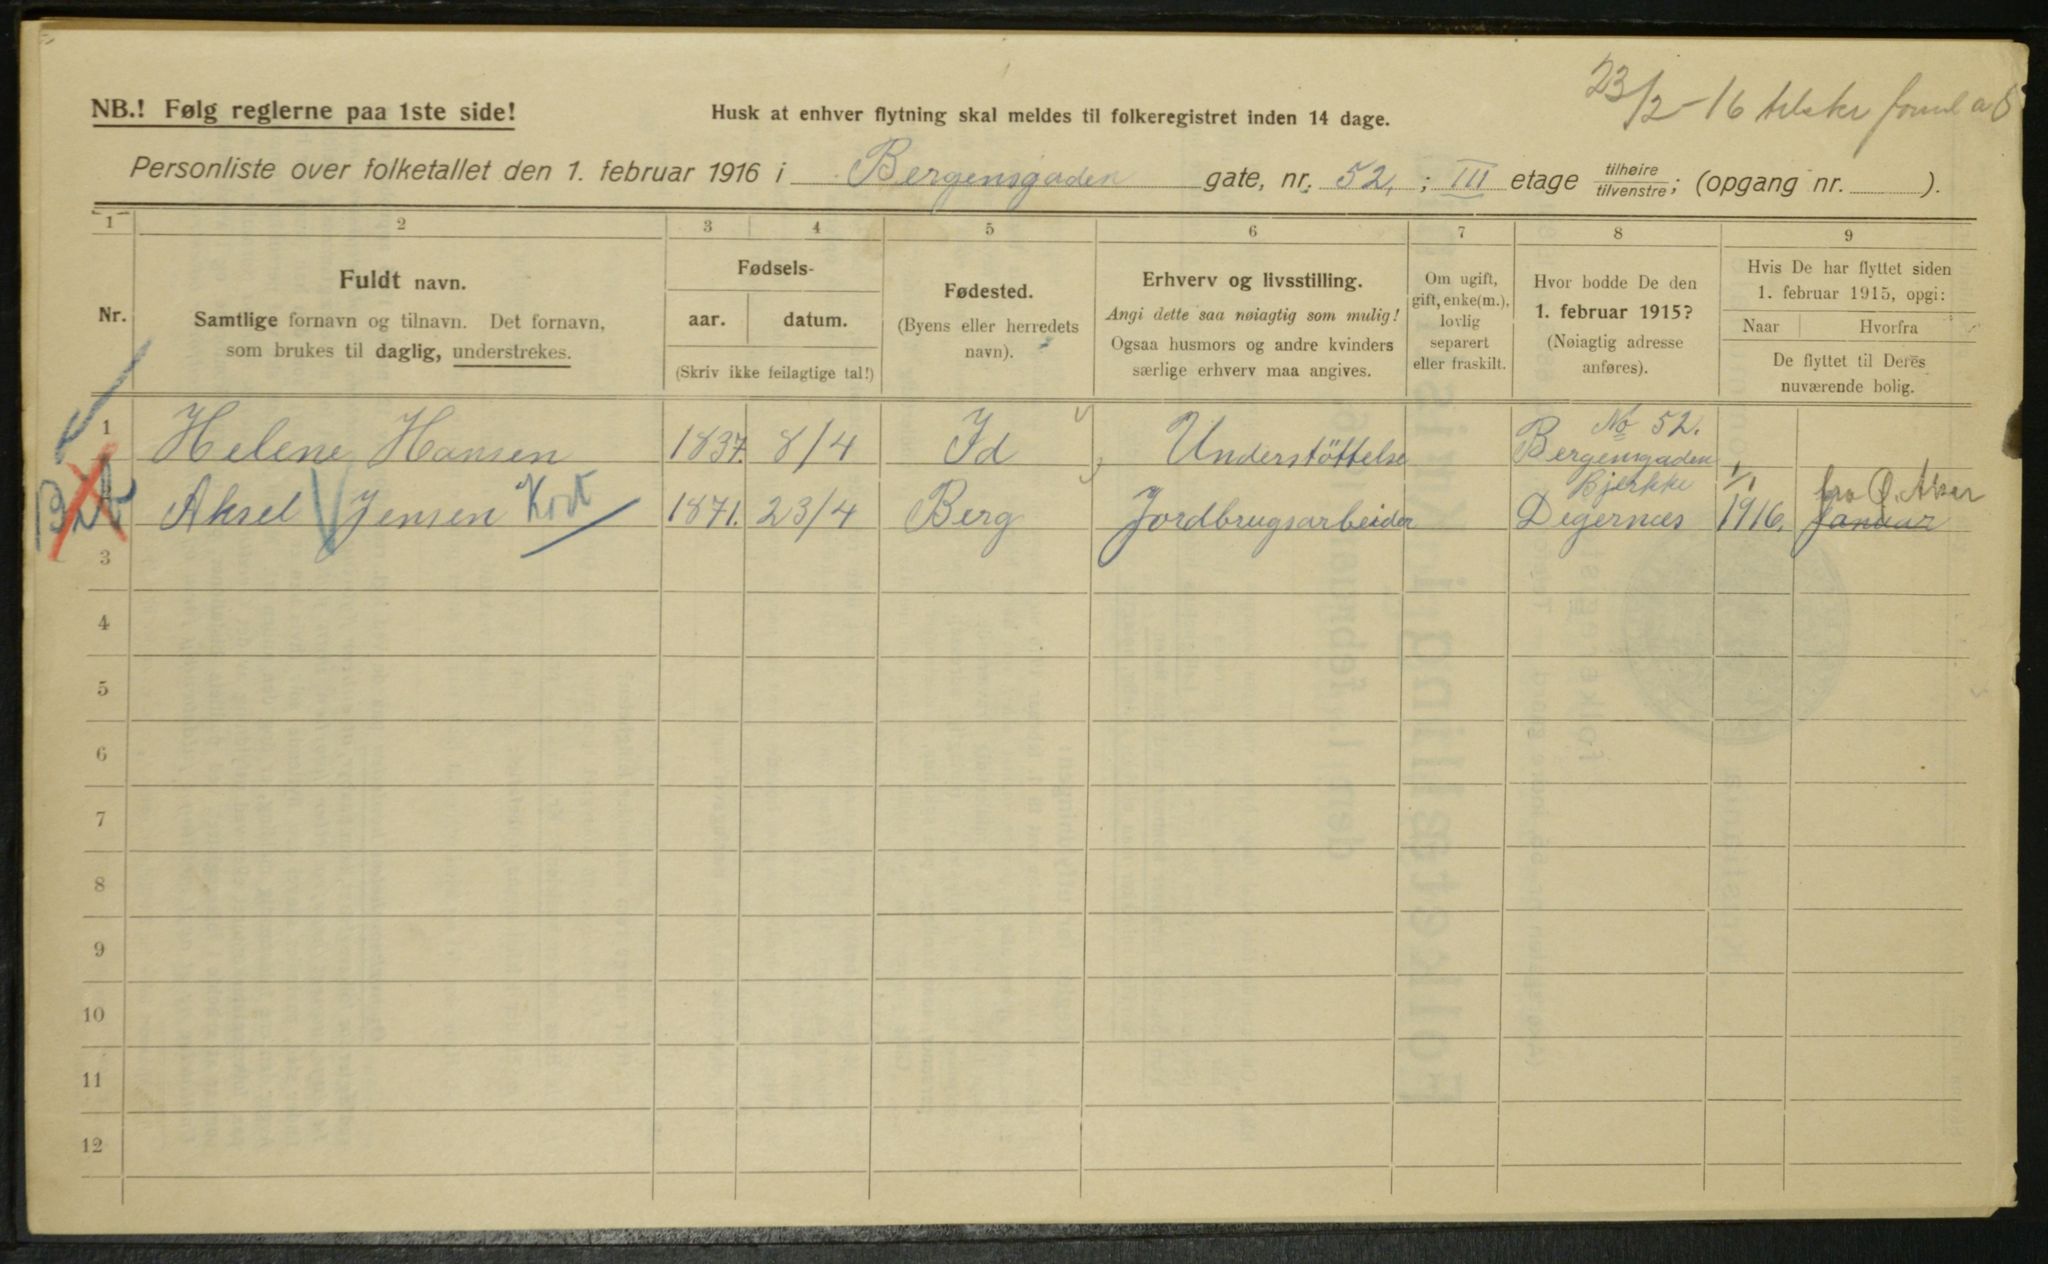 23/2-16 tilskr forml a 6
NB.! Følg reglerne paa 1ste side!
Husk at enhver flytning skal meldes til folkeregistret inden 14 dage.
Personliste over folketallet den 1. februar 1916 i Bergensgaden gate, nr. 52. ; III etage tilhøire / tilvenstre; (opgang nr. ).
1 2 3 4 5 6 7 8 9
Nr.
Fuldt navn.
Samtlige fornavn og tilnavn. Det fornavn,
som brukes til daglig, understrekes.
Fødsels-
aar. datum.
(Skriv ikke feilagtige tal!)
Fødested.
(Byens eller herredets
navn).
Erhverv og livsstilling.
Angi dette saa nøiagtig som mulig!
Ogsaa husmors og andre kvinders
særlige erhverv maa angives.
Om ugift,
gift, enke(m.),
lovlig
separert
eller fraskilt.
Hvor bodde De den
1. februar 1915?
(Nøiagtig adresse
anføres).
Hvis De har flyttet siden
1. februar 1915, opgi:
Naar Hvorfra
De flyttet til Deres
nuværende bolig.
No 52.
1 Helene Hansen 1837. 8/4 Id Understöttelse Bergensgaden
Bjerkke 1/1 fra Ø. Aker
2 Aksel Jensen Kort 1871. 23/4 Berg Jordbrugsarbeider Degernæs 1916. Januar
3
4
5
6
7
8
9
10
11
12